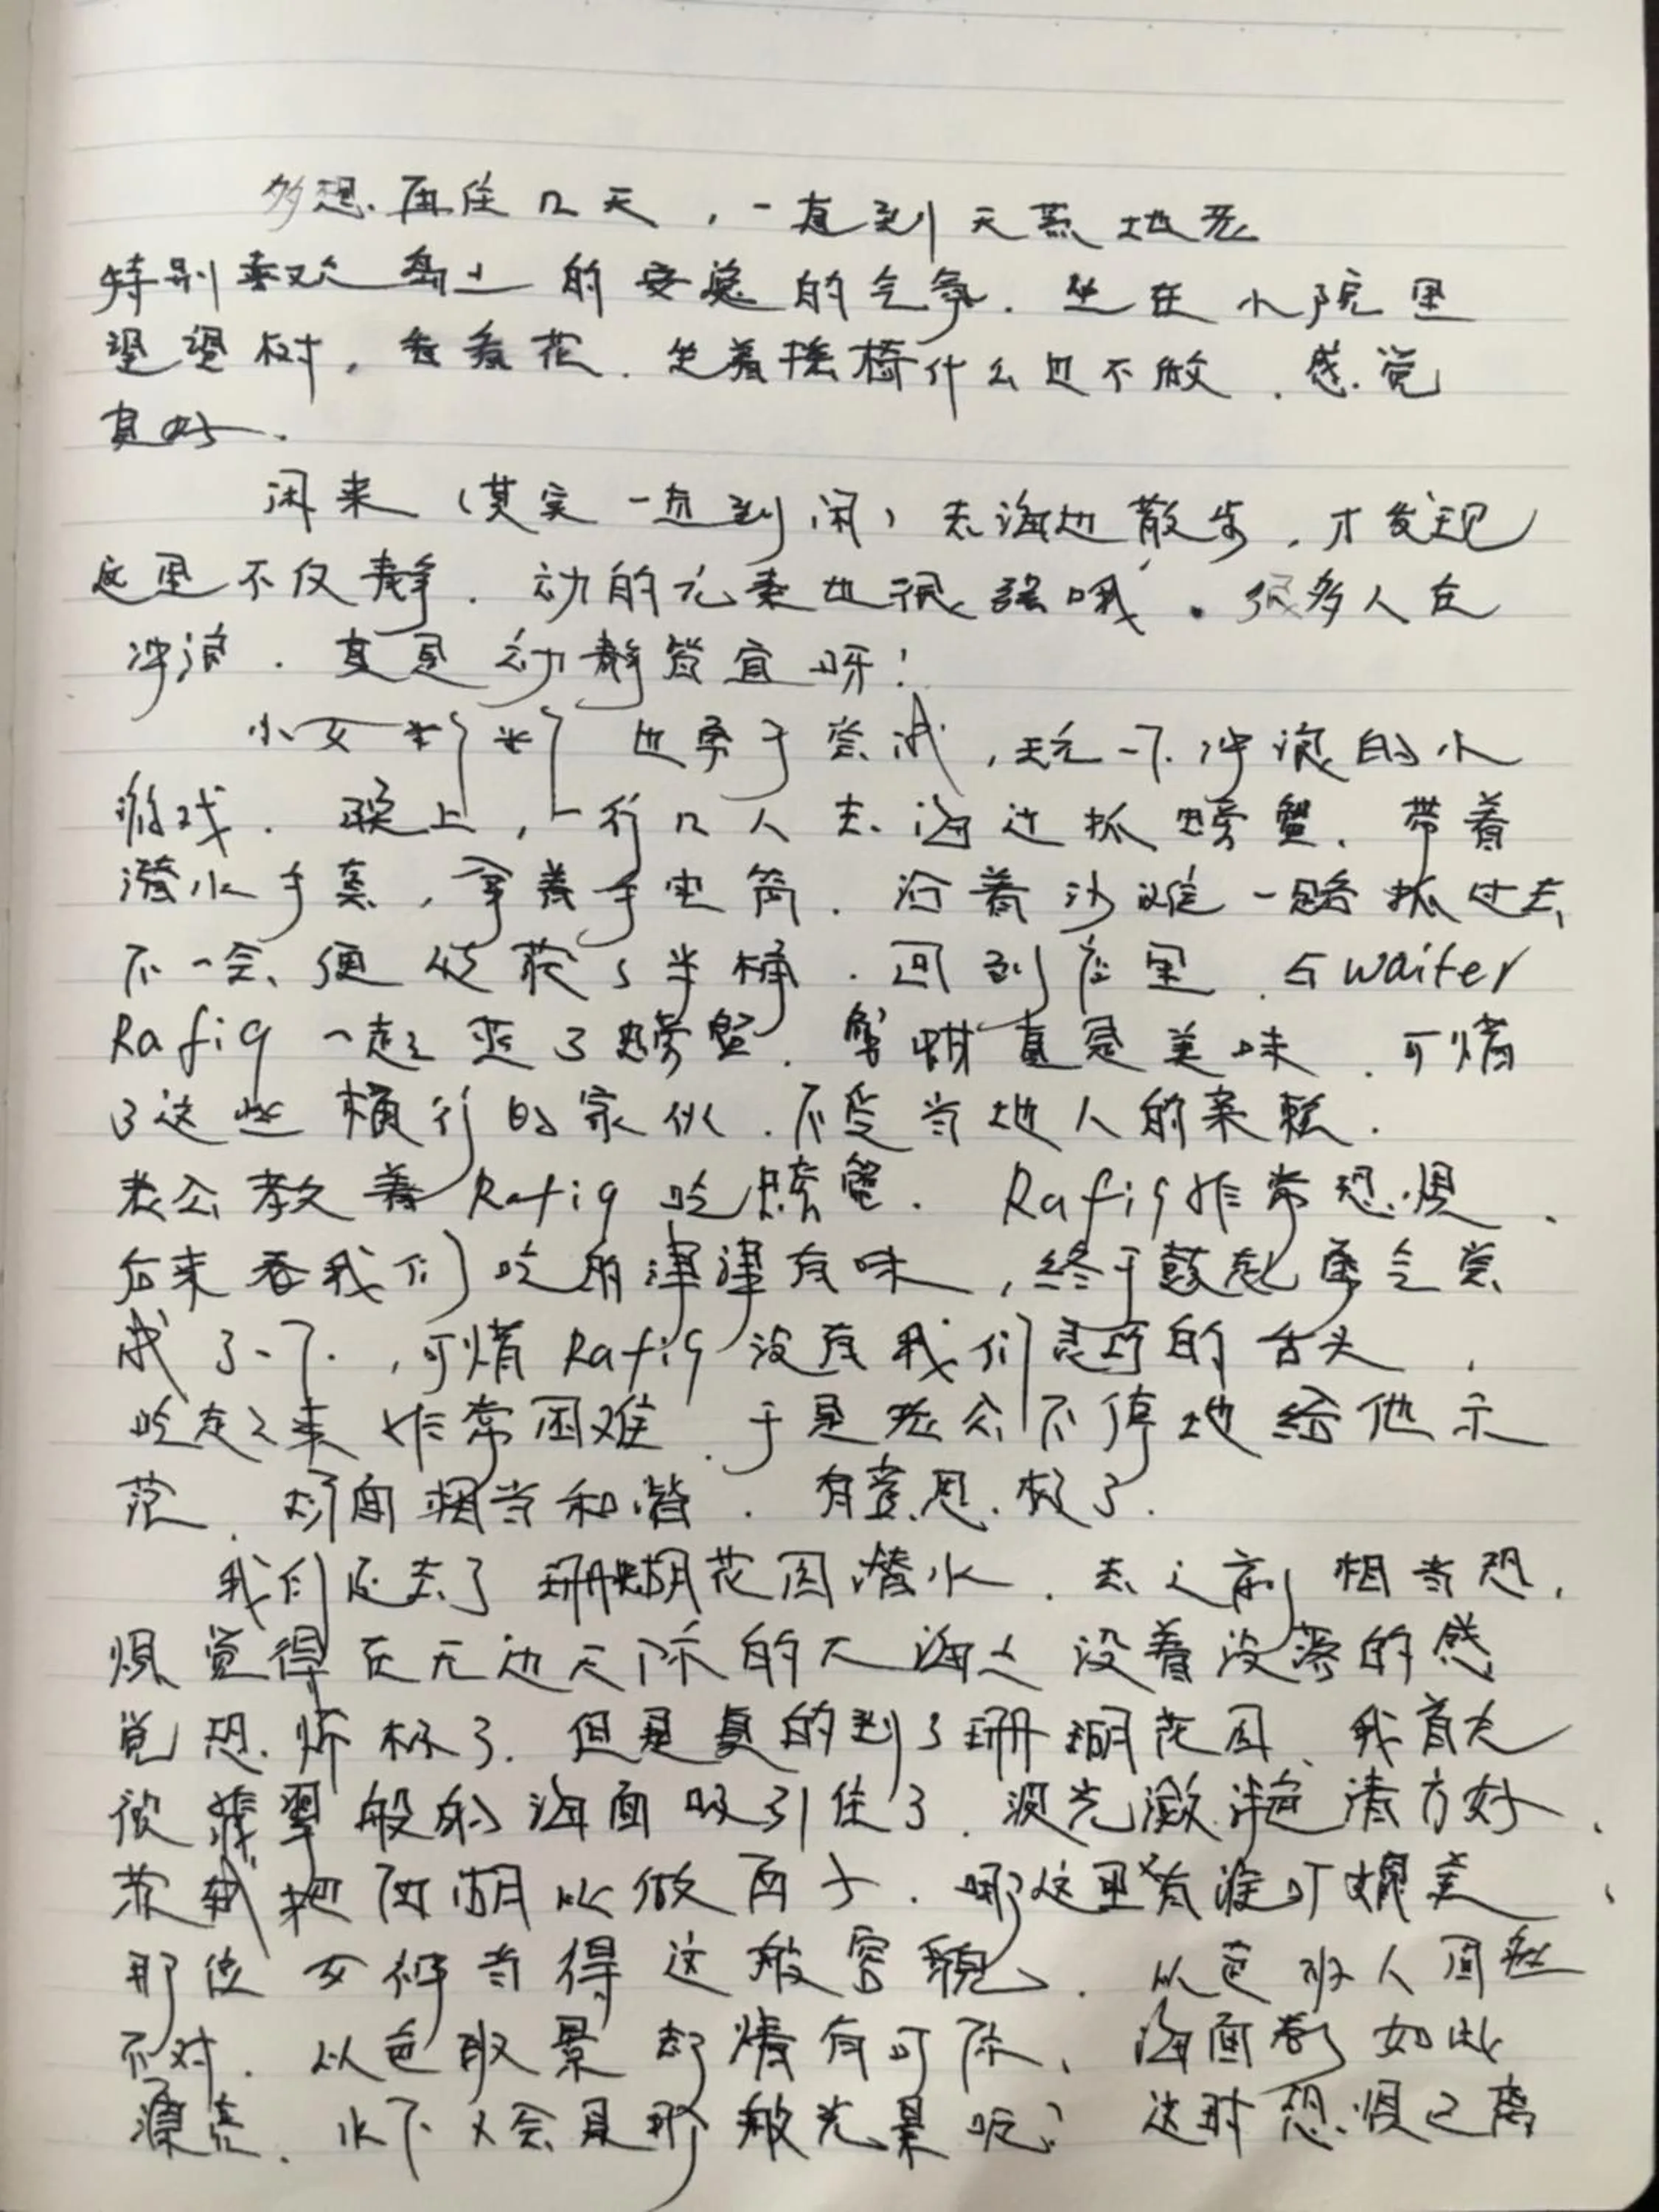 多想再住几天，一直到天荒地老
特别喜欢岛上的安逸的气氛．坐在小院里
望望树，看看花．坐着摇椅什么也不做．感觉
真好．
闲来（其实一直到闲）去海边散步，才发现
这里不仅静．动的元素也很强哦．很多人在
冲浪．真是动静皆宜呀！
小女叶叶也勇于尝试，玩一下冲浪的小
游戏．晚上，一行几人去海边抓螃蟹．带着
潜水手套，拿着手电筒．沿着沙滩一路抓过去
不一会、便收获了半桶．回到店里．与waiter
Rafiq一起蒸了螃蟹．蟹钳真是美味．可惜
了这些横行的家伙．不受当地人的亲睐．
老公教着Rafiq吃螃蟹． Rafiq非常恐惧．
后来看我们吃的津津有味，终于鼓起勇气尝
试了一下．，可惜Rafiq没有我们灵巧的舌头，
吃起来非常困难．于是老公不停地给他示
范．场面相当和谐．有意思极了．
我们还去了珊瑚花园潜水．去之前相当恐．
惧觉得在无边天际的大海上没着没落的感
觉恐怖极了．但是真的到了珊瑚花园、我首先
被翡翠般的海面吸引住了．波光潋滟晴方好、
苏轼把西湖比做西子．哪这里有谁可媲美、
那位女神当得这般容貌．以色取人固然
不对．以色取景却情有可原、海面都如此
漂亮．水下又会是那般光景呢？这时恐惧已离